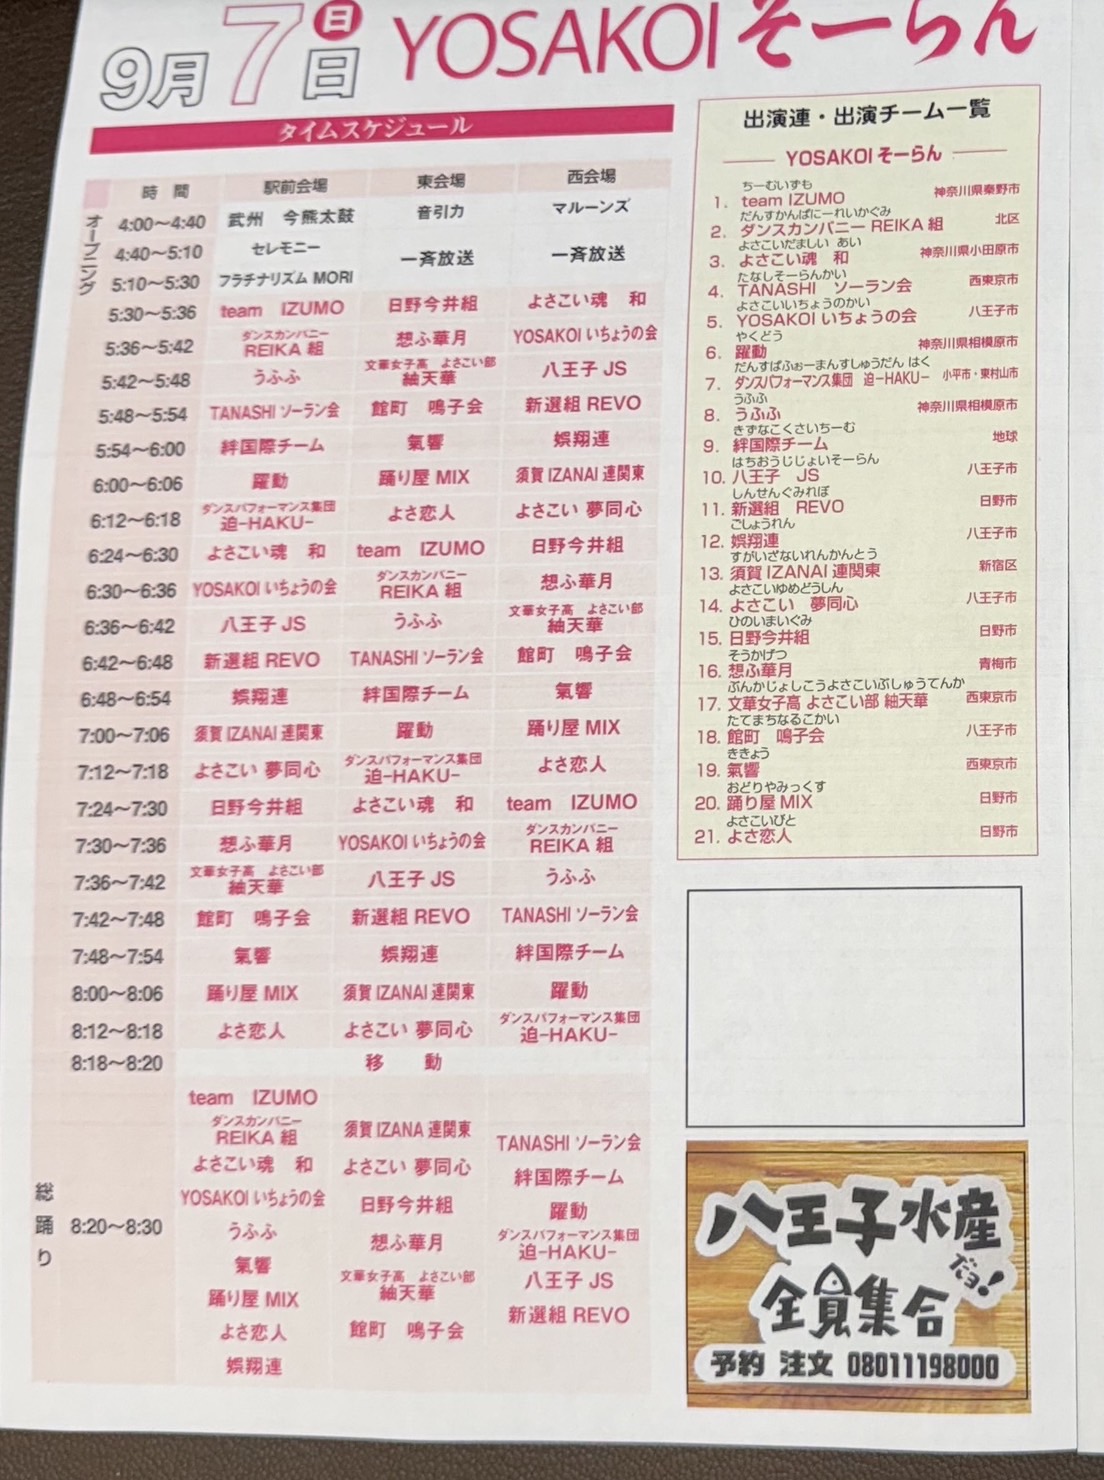 9月7日 日 YOSAKOI そーらん
タイムスケジュール
時 間 駅前会場 東会場 西会場
オープニング
4:00～4:40 武州 今熊太鼓 音引力 マルーンズ
4:40～5:10 セレモニー 一斉放送 一斉放送
5:10～5:30 プラチナリズム MORI
5:30～5:36 team IZUMO 日野今井組 よさこい魂 和
5:36～5:42 ダンスカンパニー REIKA 組 想ふ華月 YOSAKOI いちょうの会
5:42～5:48 うふふ 文華女子高 よさこい部 紬天華 八王子 JS
5:48～5:54 TANASHI ソーラン会 館町 鳴子会 新選組 REVO
5:54～6:00 絆国際チーム 氣響 娯翔連
6:00～6:06 躍動 踊り屋 MIX 須賀 IZANAI 連関東
6:12～6:18 ダンスパフォーマンス集団 迫-HAKU- よさ恋人 よさこい 夢同心
6:24～6:30 よさこい魂 和 team IZUMO 日野今井組
6:30～6:36 YOSAKOI いちょうの会 ダンスカンパニー REIKA 組 想ふ華月
6:36～6:42 八王子 JS うふふ 文華女子高 よさこい部 紬天華
6:42～6:48 新選組 REVO TANASHI ソーラン会 館町 鳴子会
6:48～6:54 娯翔連 絆国際チーム 氣響
7:00～7:06 須賀 IZANAI 連関東 躍動 踊り屋 MIX
7:12～7:18 よさこい 夢同心 ダンスパフォーマンス集団 迫-HAKU- よさ恋人
7:24～7:30 日野今井組 よさこい魂 和 team IZUMO
7:30～7:36 想ふ華月 YOSAKOI いちょうの会 ダンスカンパニー REIKA 組
7:36～7:42 文華女子高 よさこい部 紬天華 八王子 JS うふふ
7:42～7:48 館町 鳴子会 新選組 REVO TANASHI ソーラン会
7:48～7:54 氣響 娯翔連 絆国際チーム
8:00～8:06 踊り屋 MIX 須賀 IZANAI 連関東 躍動
8:12～8:18 よさ恋人 よさこい 夢同心 ダンスパフォーマンス集団 迫-HAKU-
8:18～8:20 移 動
総踊り
8:20～8:30
team IZUMO
ダンスカンパニー
REIKA 組
よさこい魂 和
YOSAKOI いちょうの会
うふふ
氣響
踊り屋 MIX
よさ恋人
娯翔連
須賀 IZANA 連関東
よさこい 夢同心
日野今井組
想ふ華月
文華女子高 よさこい部
紬天華
館町 鳴子会
TANASHI ソーラン会
絆国際チーム
躍動
ダンスパフォーマンス集団
迫-HAKU-
八王子 JS
新選組 REVO
出演連・出演チーム一覧
YOSAKOI そーらん
ちーむいずも
1. team IZUMO 神奈川県秦野市
だんすかんぱにーれいかぐみ
2. ダンスカンパニー REIKA 組 北区
よさこいだましい あい
3. よさこい魂 和 神奈川県小田原市
たなしそーらんかい
4. TANASHI ソーラン会 西東京市
よさこいいちょうのかい
5. YOSAKOI いちょうの会 八王子市
やくどう
6. 躍動 神奈川県相模原市
だんすぱふぉーまんすしゅうだん はく
7. ダンスパフォーマンス集団 迫-HAKU- 小平市・東村山市
うふふ
8. うふふ 神奈川県相模原市
きずなこくさいちーむ
9. 絆国際チーム 地球
はちおうじじょいそーらん
10. 八王子 JS 八王子市
しんせんぐみれぼ
11. 新選組 REVO 日野市
ごしょうれん
12. 娯翔連 八王子市
すがいざないれんかんとう
13. 須賀 IZANAI 連関東 新宿区
よさこいゆめどうしん
14. よさこい 夢同心 八王子市
ひのいまいぐみ
15. 日野今井組 日野市
そうかげつ
16. 想ふ華月 青梅市
ぶんかじょしこうよさこいぶしゅうてんか
17. 文華女子高 よさこい部 紬天華 西東京市
たてまちなるこかい
18. 館町 鳴子会 八王子市
ききょう
19. 氣響 西東京市
おどりやみっくす
20. 踊り屋 MIX 日野市
よさこいびと
21. よさ恋人 日野市
八王子水産
だョ!
全員集合
予約 注文 08011198000